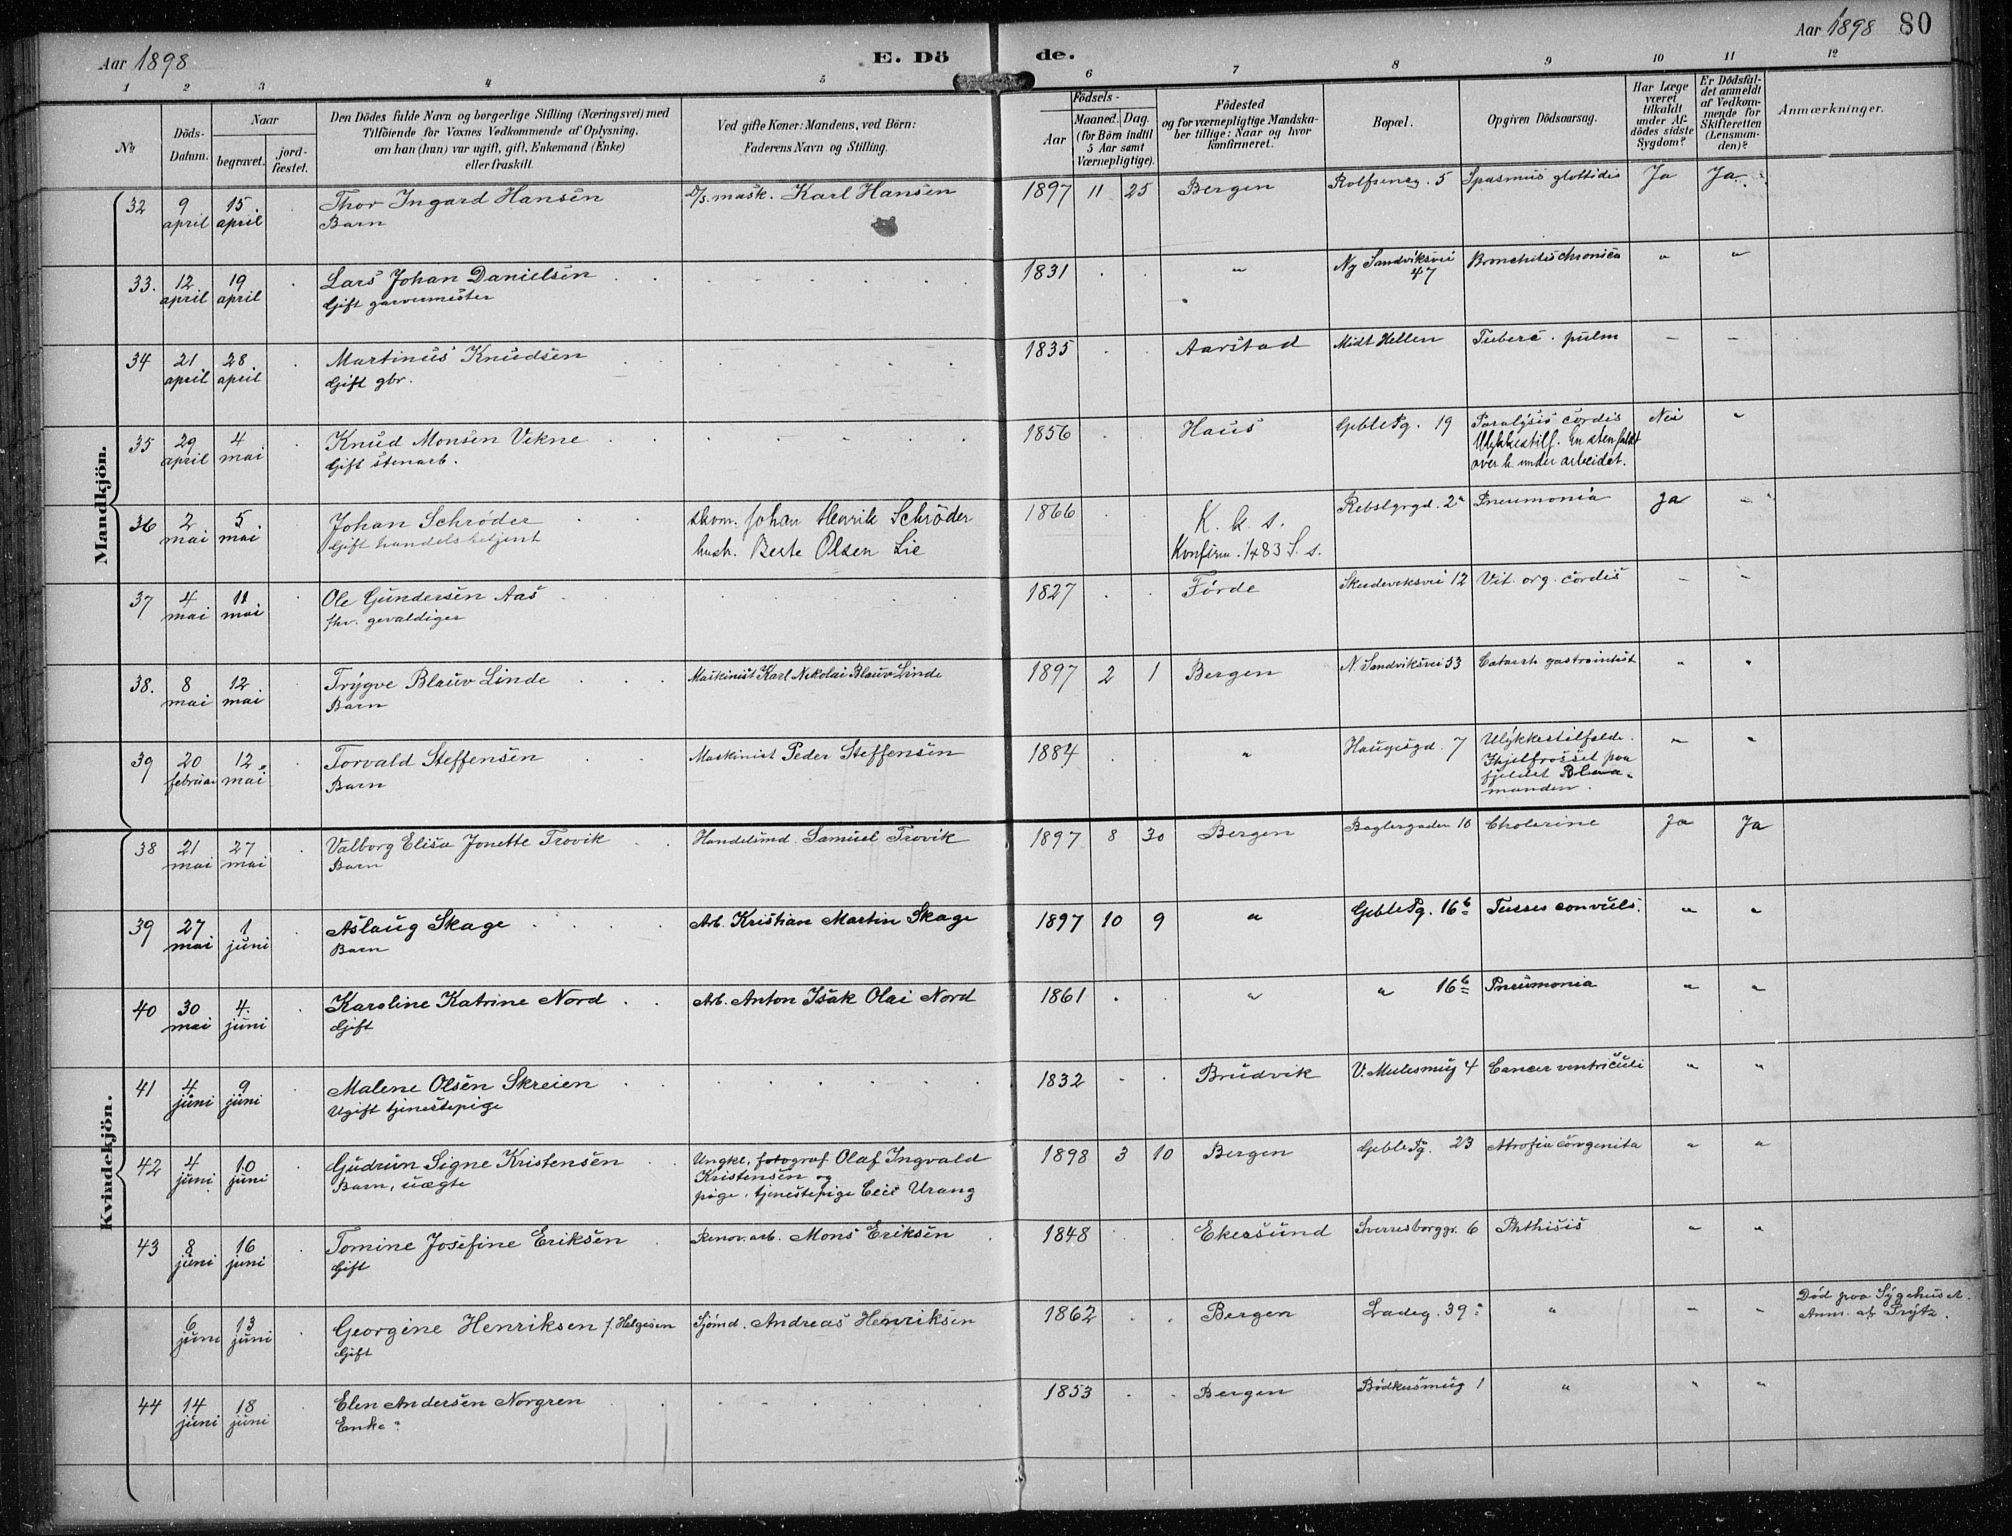 Aar 1898
E. Dö
de.
Aar 1898 80
1 2 3 4 5 6 7 8 9 10 11 12
№
Döds-
Datum.
Naar
begravet.
jord-
fæstet.
Den Dödes fulde Navn og borgerlige Stilling (Næringsvei) med
Tilföiende for Voxnes Vedkommende af Oplysning,
om han (hun) var ugift, gift, Enkemand (Enke)
eller fraskilt.
Ved gifte Koner: Mandens, ved Börn:
Faderens Navn og Stilling.
Födsels-
Aar
Maaned. Dag.
(for Börn indtil
5 Aar samt
Værnepligtige).
Födested
og for værnepligtige Mandska-
ber tillige: Naar og hvor
konfirmeret.
Bopæl.
Opgiven Dödsaarsag.
Har Læge
været
tilkaldt
under Af-
dödes sidste
Sygdom?
Er Dödsfal-
det anmeldt
af Vedkom-
mende for
Skifteretten
(Lensman-
den)?
Anmærkninger.
Mandkjön.
32 9 15 Thor Ingard Hansen D/s. mask. Karl Hansen 1897 11 25 Bergen Rolfsensg. 5 Spasmus glottidis Ja Ja
april april Barn
33. 12 19 Lars Johan Danielsen 1831 " Ny Sandviksvei Bronchitis chronica " "
april april Gift garvermester 47
34 21 28 Martinus Knudsen 1835 Aarstad Midt Hellen Tuberc. pulm – –
april april Gift gbr.
35 29 4 Knud Monsen Vikne 1856 Haus Geble Pg. 19 Paralysis cordis Nei "
april mai Gift stenarb. Ulykkestilf. En sten faldt
over h. under arbeidet.
36 2 5 Johan Schrøder skom. Johan Henrik Schrøder 1866 K. k. s. Rebslgrgd. 2a Pneumonia Ja "
mai mai Gift handelsbetjent hush. Berte Olsen Lie Konfirm. 1/4 83 S. s.
37 4 11 Ole Gundersen Aas 1827 Førde Skudeviksvei 12 Vit. org. cordis – –
mai mai fhv. gevaldiger
38. 8 12 Trygve Blauv Linde Maskinist Karl Nikolai Blauv Linde 1897 2 1 Bergen N. Sandviksvei 53 Catarrh gastrointest " "
mai mai Barn
39 20 12 Torvald Steffensen Maskinist Peder Steffensen 1884 " Haugesgd. 7 Ulykkestilfælde. " "
februar mai Barn Ihjelfrosset paa
fjeldet Blaa-
manden.
Kvindekjön.
38 21 27 Valborg Elisa Jonette Trovik Handelsmd. Samuel Trovik 1897 8 30 Bergen Baglergaden 10 Cholerine Ja Ja
mai mai Barn
39 27 1 Aslaug Skage Arb. Kristian Martin Skage 1897 10 9 " Geble Pg. 16b Tusses convuls. " "
mai juni Barn
40 30 4 Karoline Katrine Nord Arb. Anton Isak Olai Nord 1861 " " 16b Pneumonia " "
mai juni Gift
41 4 9 Malene Olsen Skreien 1832 Brudvik V. Mulesmug 4 Cancer ventriculi " "
juni juni Ugift tjenestepige
42 4 10 Gudrun Signe Kristensen Ungkl. fotograf Olaf Ingvald 1898 3 10 Bergen Geble Pg. 23 Atrofia congenita " "
juni juni Barn, uægte Kristensen og
pige, tjenestepige Urang
43 8 16 Tomine Josefine Eriksen Renov. arb. Mons Eriksen 1848 Ekersund Sverresborggr. 6 Phthisis " "
juni juni Gift
6 13 Georgine Henriksen f. Helgesen Sjømd. Andreas Henriksen 1862 Bergen Ladeg. 39 " – – Død paa Sygehuset.
juni juni Gift Anm. af Prytz.
44 14 18 Elen Andersen Norgren 1853 Bergen Bødkersmug 1 " " "
juni juni Enke